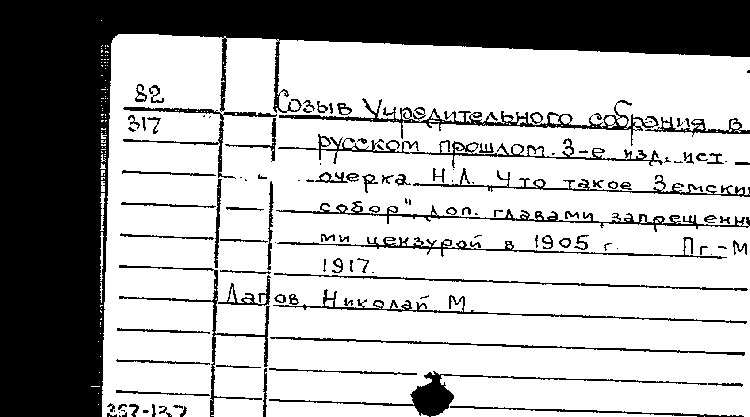 82
Созыв Учредительного собрания в
317
русском прошлом. 3-е изд. ист.
очерка Н.Л. „Что такое Земски
собор", доп. главами, запрещенн
ми цензурой в 1905 г. Пг.-М
1917.
Лапов, Николай М.
267-137